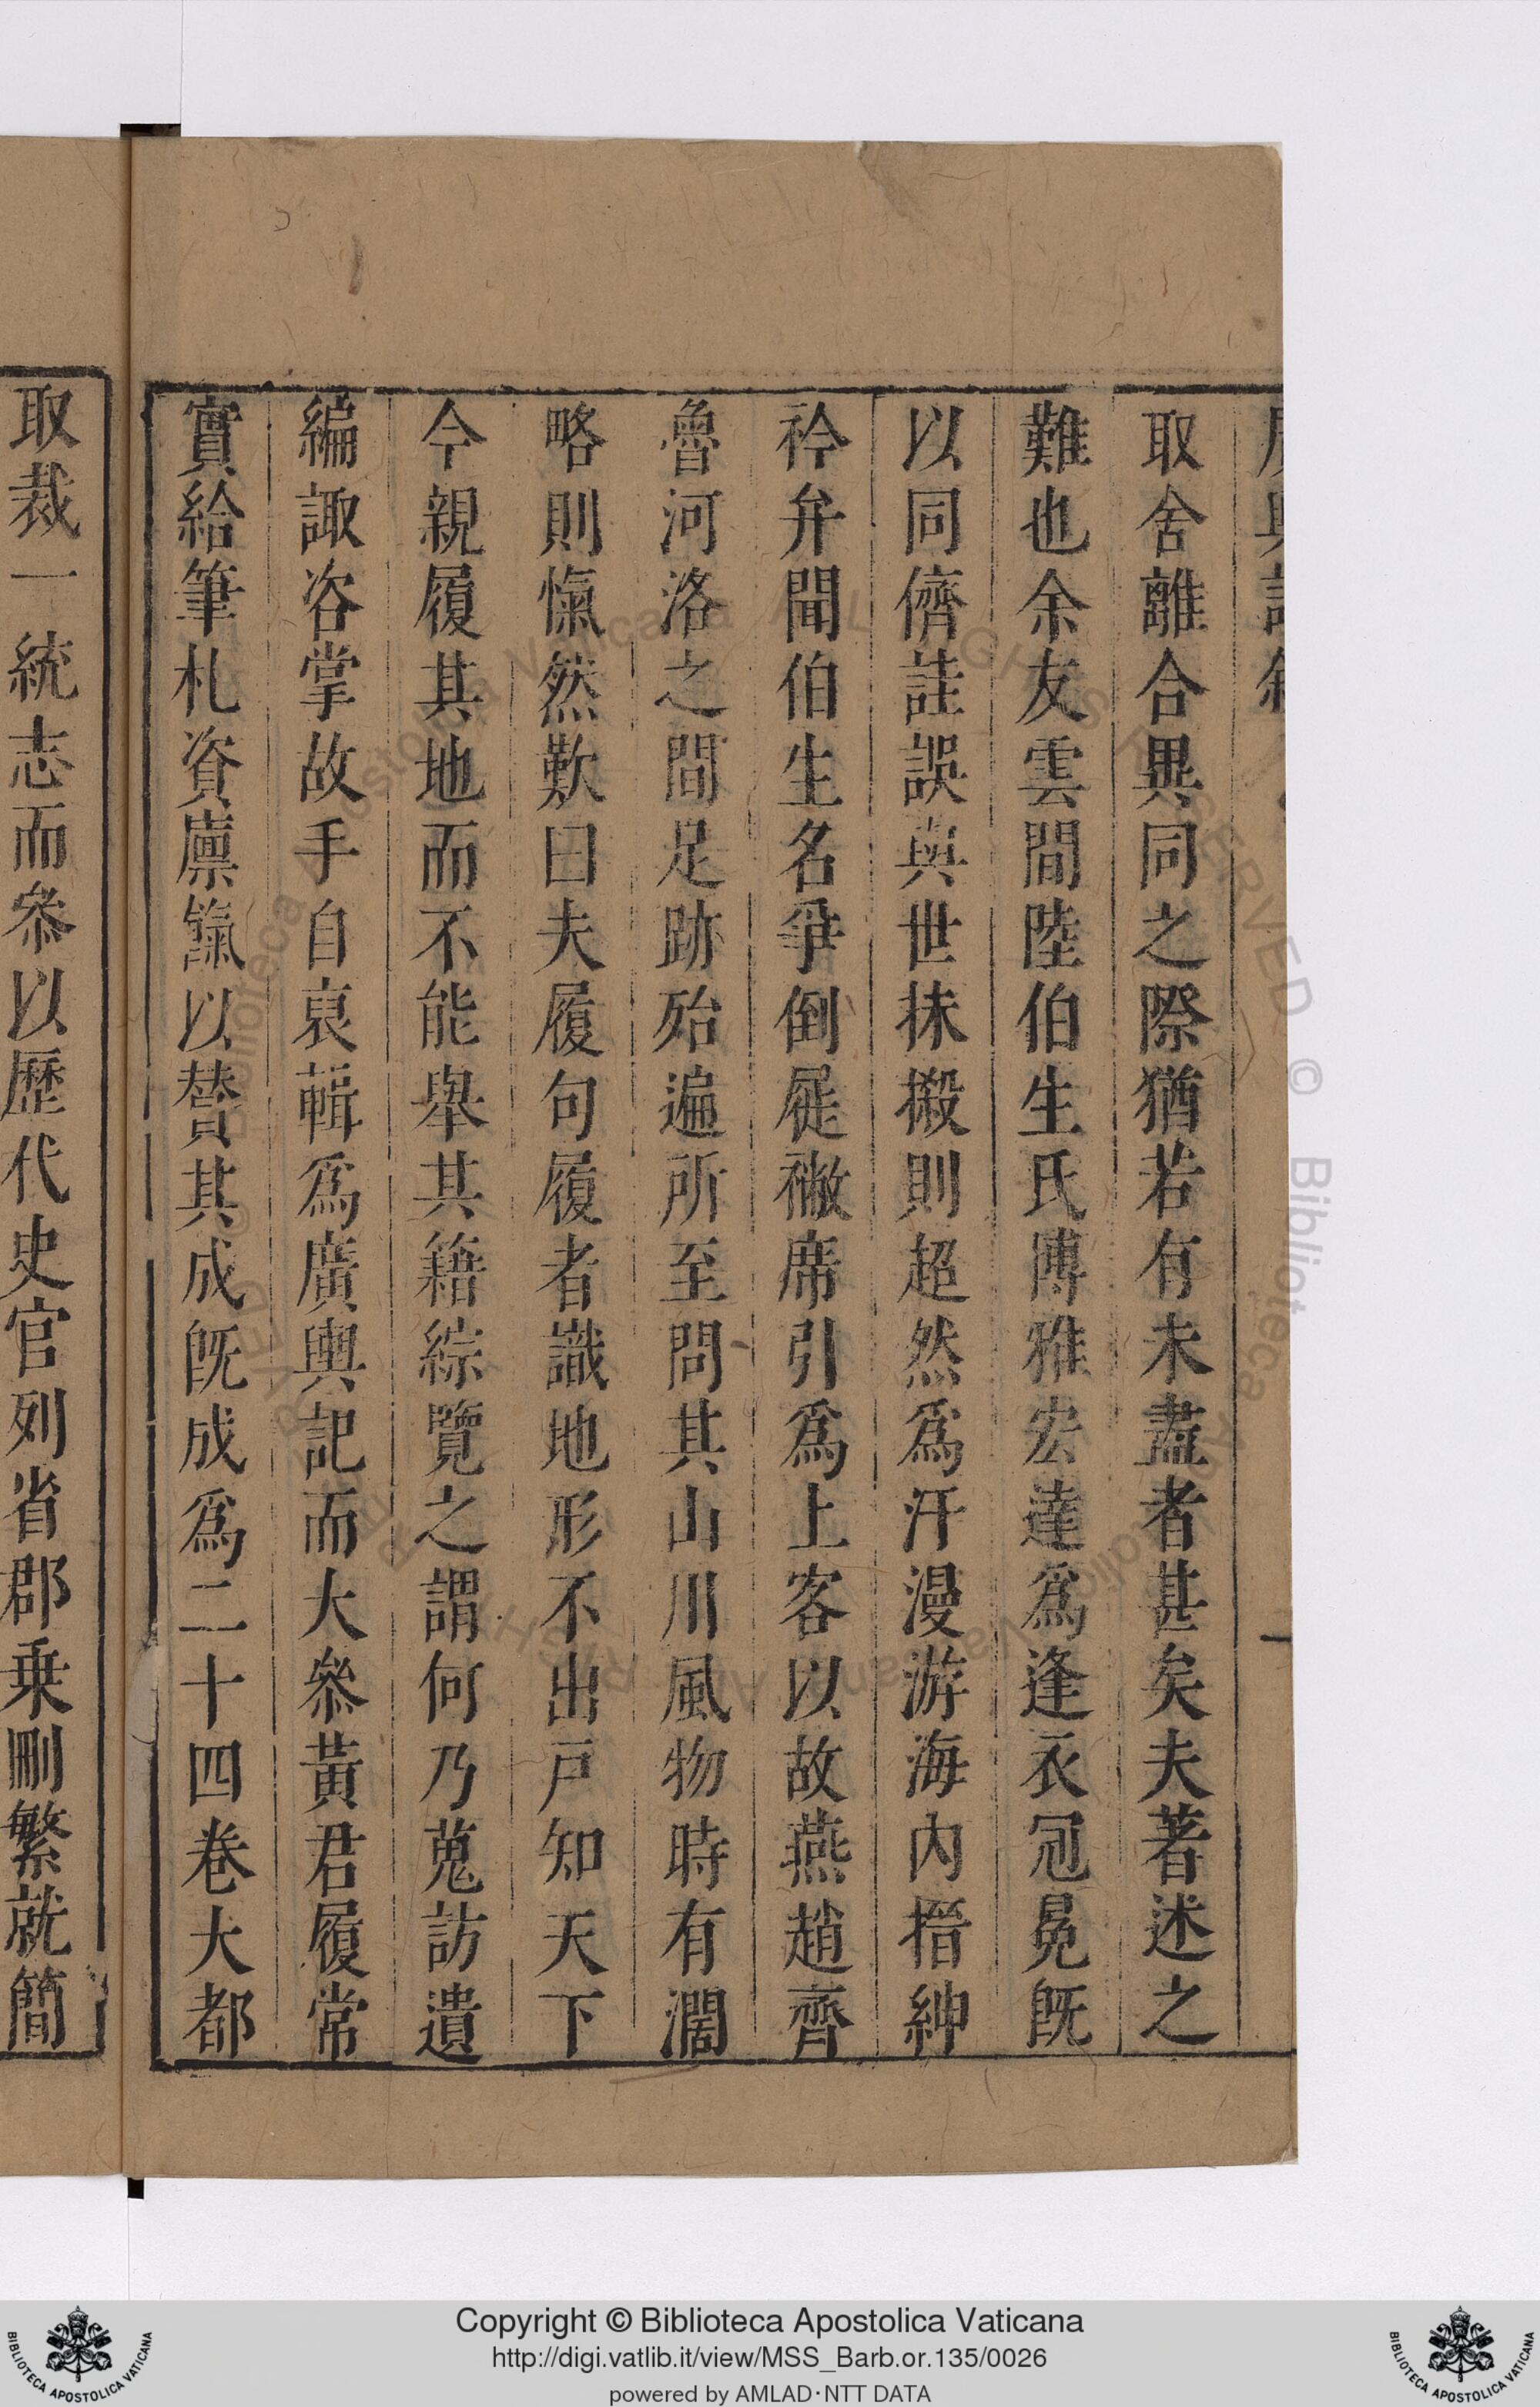 取舍離合異同之際猶若有未盡者甚矣夫著述之
難也余友雲間陸伯生氏博雅宏達爲逢衣冠冕旣
以同儕詿誤與世抹摋則超然爲汗漫游海内搢紳
衿弁聞伯生名爭倒屣襒席引爲上客以故燕趙齊
魯河洛之間足跡殆遍所至問其山川風物時有濶
略則愾然歎曰夫履句履者識地形不出戸知天下
今親履其地而不能舉其籍綜覽之謂何乃蒐訪遺
編諏咨掌故手自裒輯爲廣輿記而大叅黃君履常
實給筆札資廩餼以贊其成旣成爲二十四卷大都
取裁一統志而叅以歷代史官列省郡乗刪繁就簡
Copyright © Biblioteca Apostolica Vaticana
http://digi.vatlib.it/view/MSS_Barb.or.135/0026
powered by AMLAD·NTT DATA
BIBLIOTECA APOSTOLICA VATICANA
BIBLIOTECA APOSTOLICA VATICANA